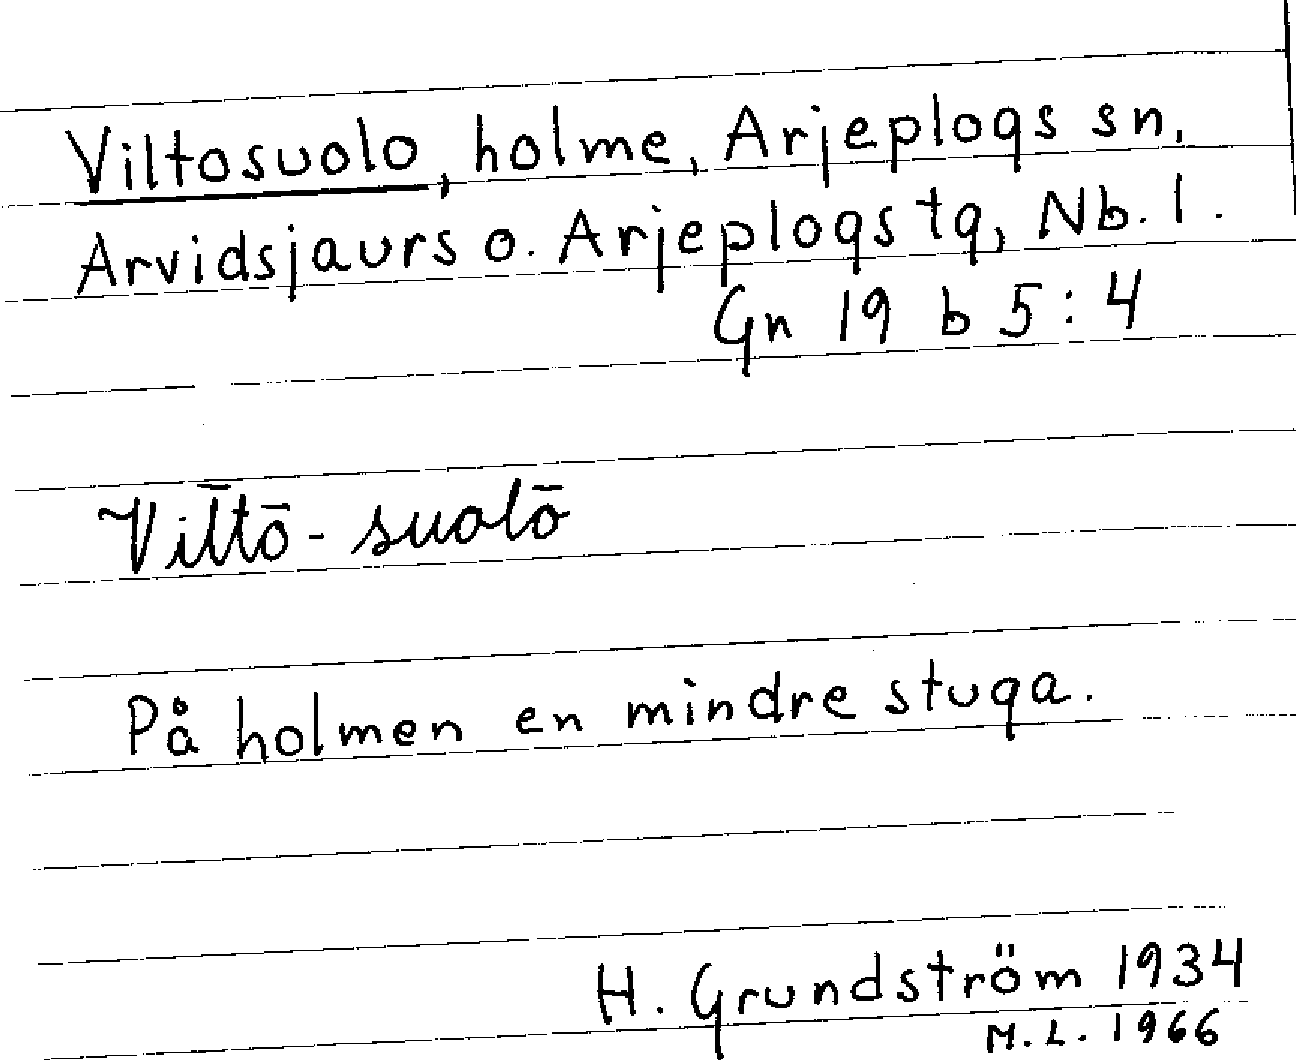 Viltosuolo, holme, Arjeplogs sn,
Arvidsjaurs o. Arjeplogs tg, Nb. l.
Gn 19 b 5:4
Vil̄tō-suolō
På holmen en mindre stuga.
H. Grundström 1934
M.L. 1966